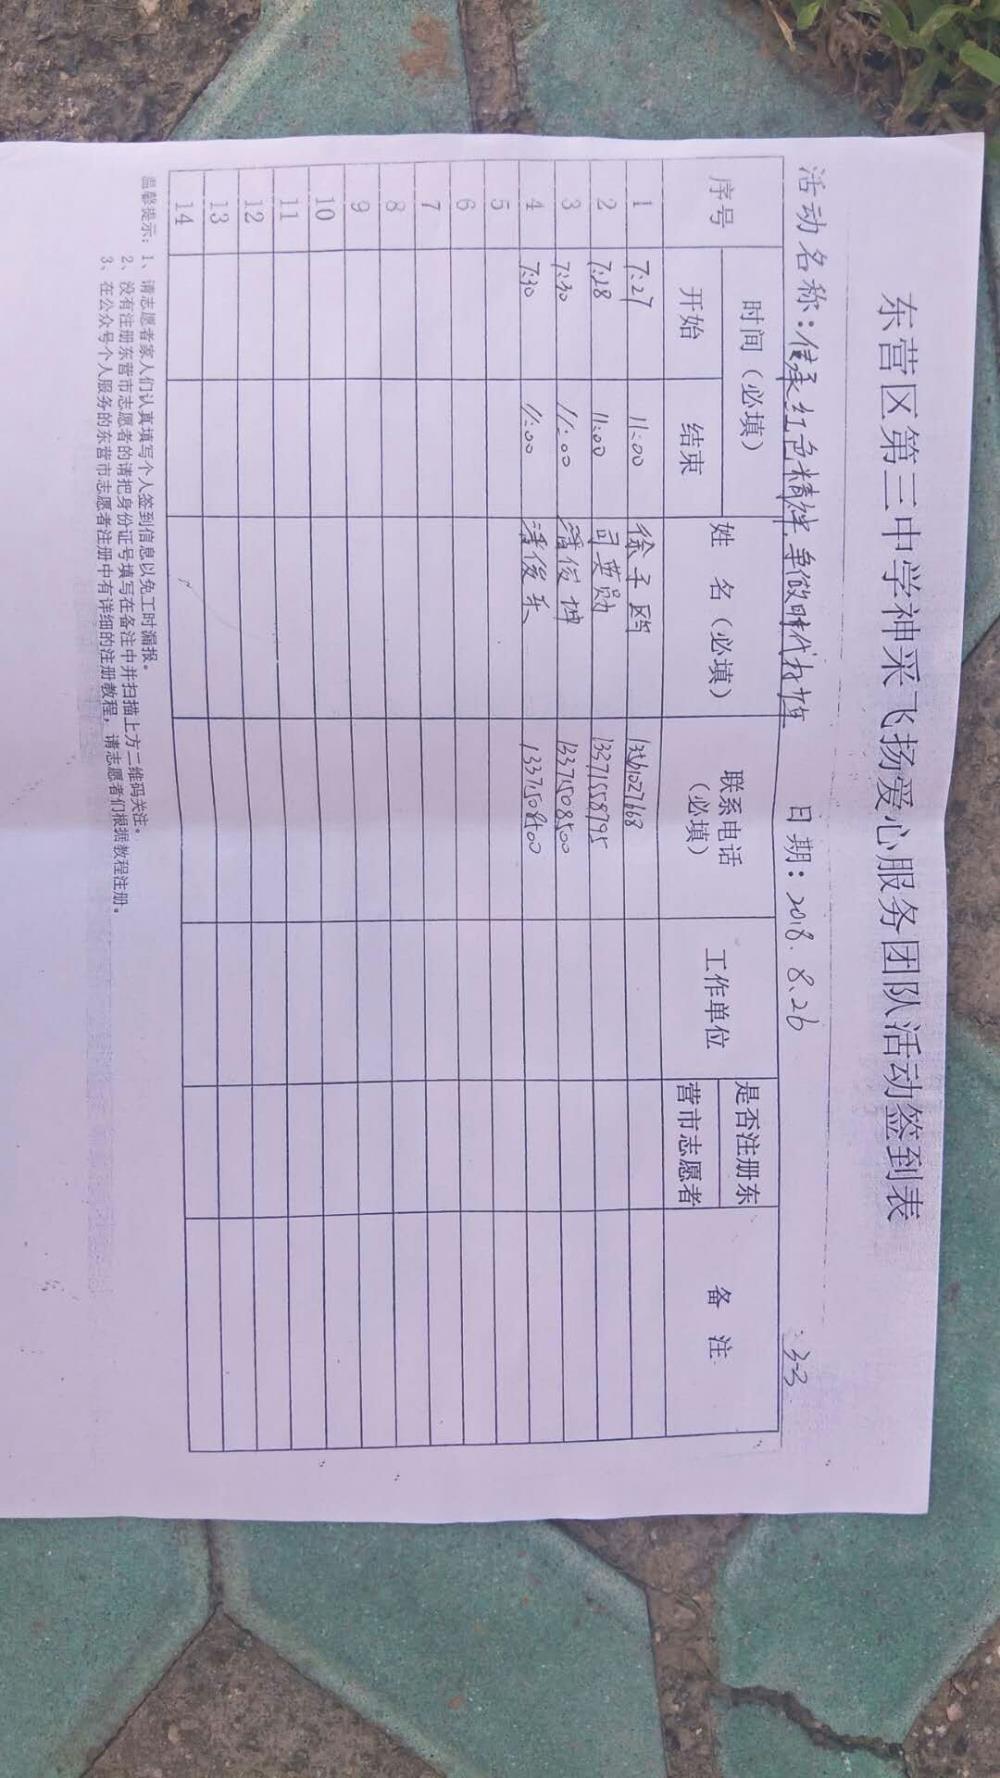 东营区第三中学神采飞扬爱心服务团队活动签到表
活动名称：传承红色精神 争做时代标兵 日期：2018.8.26 3-3
序号 时间（必填） 姓 名（必填） 联系电话（必填） 工作单位 是否注册东营市志愿者 备 注
开始 结束
1 7:27 11:00 徐子
2 7:28 11:00 司英勋 13371558795
3 7:30 11:00 潘俊坤 13371508500
4 7:30 11:00 潘俊乐 13371508500
5
6
7
8
9
10
11
12
13
14
温馨提示：1、请志愿者家人们认真填写个人签到信息以免工时漏报。
2、没有注册东营市志愿者的请把身份证号填写在备注中并扫描上方二维码关注。
3、在公众号个人服务的东营市志愿者注册中有详细的注册教程，请志愿者们根据教程注册。